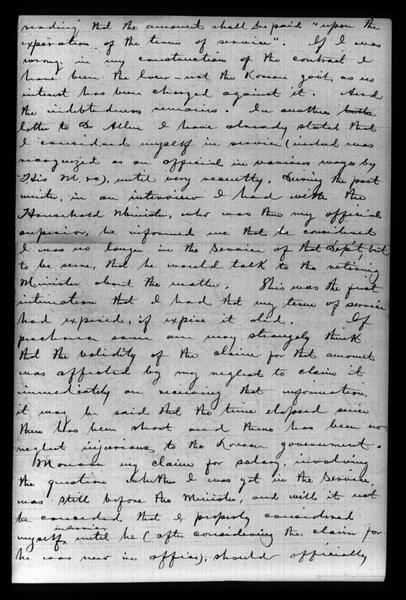 reading that the amount shall be paid "upon the
expiration of the term of service". If I was
wrong in my construction of the contract I
have been the loser - not the Korean govt, as no
interest has been charged against it. And
the indebtedness remains. In another
letter to Dr Allen I have already stated that
I considered myself in service (indeed was
recognized as an official in various ways by
His M.), until very recently. During the past
winter, in an interview I had with the
Household Minister, who was then my official
superior, he informed me that he considered
I was no longer in the Service of that Dep't, but
to be sure, that he would talk to the retiring
Minister about the matter. This was the first
intimation that I had that my term of service
had expired, if expire it did. If
perchance some one may strangely think
that the validity of the claim for that amount
was affected by my neglect to claim it
immediately on receiving that information,
it may be said that the time elapsed since
then has been short and there has been no
neglect injurious to the Korean government.
Moreover my claim for salary, involving
the question whether I was yet in the Service,
was still before the Minister, and will it not
be conceded that I properly considered
myself in service until he (after considering the claim for
he was new in office), should officially